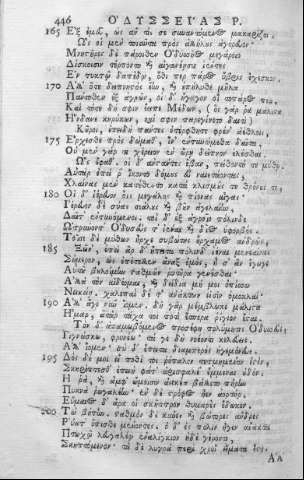 446 ὈΔΥΣΣΕΊΑΣ Ρ.
165 Ἐξ ἐμοῦ, ὡς ἄν τίς σε συναντόμενος μακαρίζοι.
Ὣς οἱ μὲν τοιαῦτα πρὸς ἀλλήλους ἀγόρευον·
Μνηστῆρες δὲ πάροιθεν Ὀδυσσῆος μεγάροιο
Δίσκοισιν τέρποντο καὶ αἰγανέῃσιν ἱέντες
Ἐν τυκτῷ δαπέδῳ, ὅθι περ πάρος ὕβριν ἔχεσκον.
170 Ἀλλ' ὅτε δὴ δείπνηστος ἔην, καὶ ἐπήλυθε μῆλα
Πάντοθεν ἐξ ἀγρῶν, οἱ δ' ἤγαγον οἳ τοπάρος περ,
Καὶ τότε δή σφιν ἔειπε Μέδων, (ὃς γάρ ῥα μάλιστα
Ἥνδανε κηρύκων, καί σφιν παρεγίνετο δαιτί)
Κοῦροι, ἐπειδὴ πάντες ἐτέρφθητε φρέν' ἀέθλοις,
175 Ἔρχεσθε πρὸς δώμαθ', ἵν' ἐντυνώμεθα δαῖτα·
Οὐ μὲν γάρ τι χέρειον ἐν ὥρῃ δεῖπνον ἑλέσθαι.
Ὣς ἔφαθ'· οἱ δ' ἀνστάντες ἔβαν, πείθοντό τε μύθῳ.
Αὐτὰρ ἐπεί ῥ' ἵκοντο δόμους εὖ ναιετάοντας,
Χλαίνας μὲν κατέθεντο κατὰ κλισμούς τε θρόνους τε,
180 Οἱ δ' ἱέρευον ὄϊς μεγάλους καὶ πίονας αἶγας·
Ἵρευον δὲ σύας σιάλους καὶ βοῦν ἀγελαίην,
Δαῖτ' ἐντυνόμενοι. τοὶ δ' ἐξ ἀγροῖο πόλινδε
Ὠτρύνοντ' Ὀδυσεύς τ' ἰέναι καὶ δῖος ὑφορβός.
Τοῖσι δὲ μύθων ἦρχε συβώτης ὄρχαμος ἀνδρῶν,
185 Ξεῖν', ἐπεὶ ἂρ δὴ ἔπειτα πόλινδ' ἰέναι μενεαίνεις
Σήμερον, ὡς ἐπέτελλεν ἄναξ ἐμός, ἦ σ' ἂν ἔγωγε
Αὐτοῦ βουλοίμην σταθμῶν ῥυτῆρα γενέσθαι·
Ἀλλὰ τὸν αἰδέομαι, καὶ δείδια μή μοι ὀπίσσω
Νεικείῃ· χαλεπαὶ δέ τ' ἀνάκτων εἰσὶν ὁμοκλαί·
190 Ἀλλ' ἄγε νῦν ἴομεν· δὴ γὰρ μέμβλωκε μάλιστα
Ἦμαρ, ἀτὰρ τάχα τοι ποτὶ ἕσπερα ῥίγιον ἔσται.
Τὸν δ' ἀπαμειβόμενος προσέφη πολύμητις Ὀδυσσεύς,
Γιγνώσκω, φρονέω· τά γε δὴ νοέοντι κελεύεις.
Ἀλλ' ἴομεν· σὺ δ' ἔπειτα διαμπερὲς ἡγεμόνευε.
195 Δὸς δέ μοι εἴ ποθί τοι ῥόπαλον τετμημένον ἐστὶ,
Σκηρίπτεσθ'· ἐπειὴ φάτ' ἀρισφαλέ' ἔμμεναι οὐδόν.
Ἦ ῥά, καὶ ἀμφ' ὤμοισιν ἀεικέα βάλετο πήρην
Πυκνὰ ῥωγαλέην· ἐν δὲ στρόφος ἦεν ἀορτήρ.
Εὔμαιος δ' ἄρα οἱ σκῆπτρον θυμαρὲς ἔδωκεν.
200 Τὼ βήτην. σταθμὸν δὲ κύνες καὶ βώτορες ἄνδρες
Ῥύατ' ὄπισθε μένοντες· ὁ δ' ἐς πόλιν ἦγεν ἄνακτα
Πτωχῷ λευγαλέῳ ἐναλίγκιον ἠδὲ γέροντι,
Σκηπτόμενον· τὰ δὲ λυγρὰ περὶ χροῒ εἵματα ἕστο.
Ἀλλ'